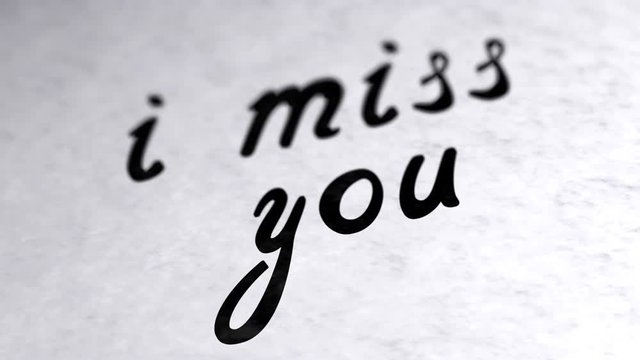 i miss
you